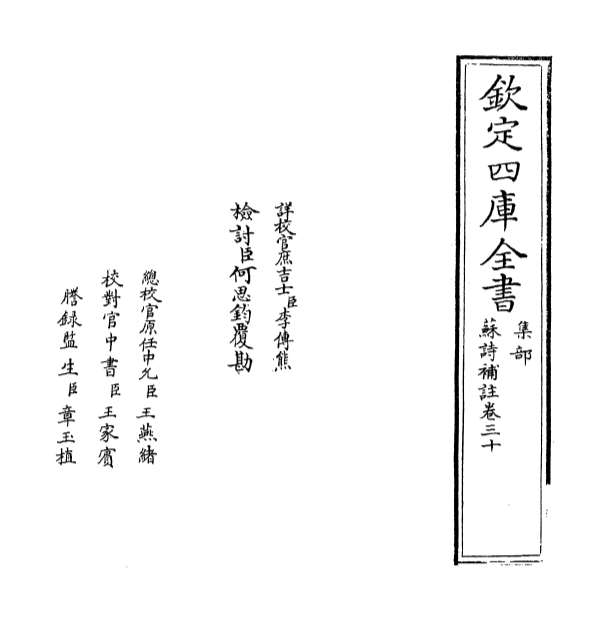 欽定四庫全書
集部
蘇詩補註卷三十
詳校官庶吉士臣李傳熊
檢討臣何思鈞覆勘
總校官原任中允臣王燕緒
校對官中書臣王家賓
謄錄監生臣章玉植